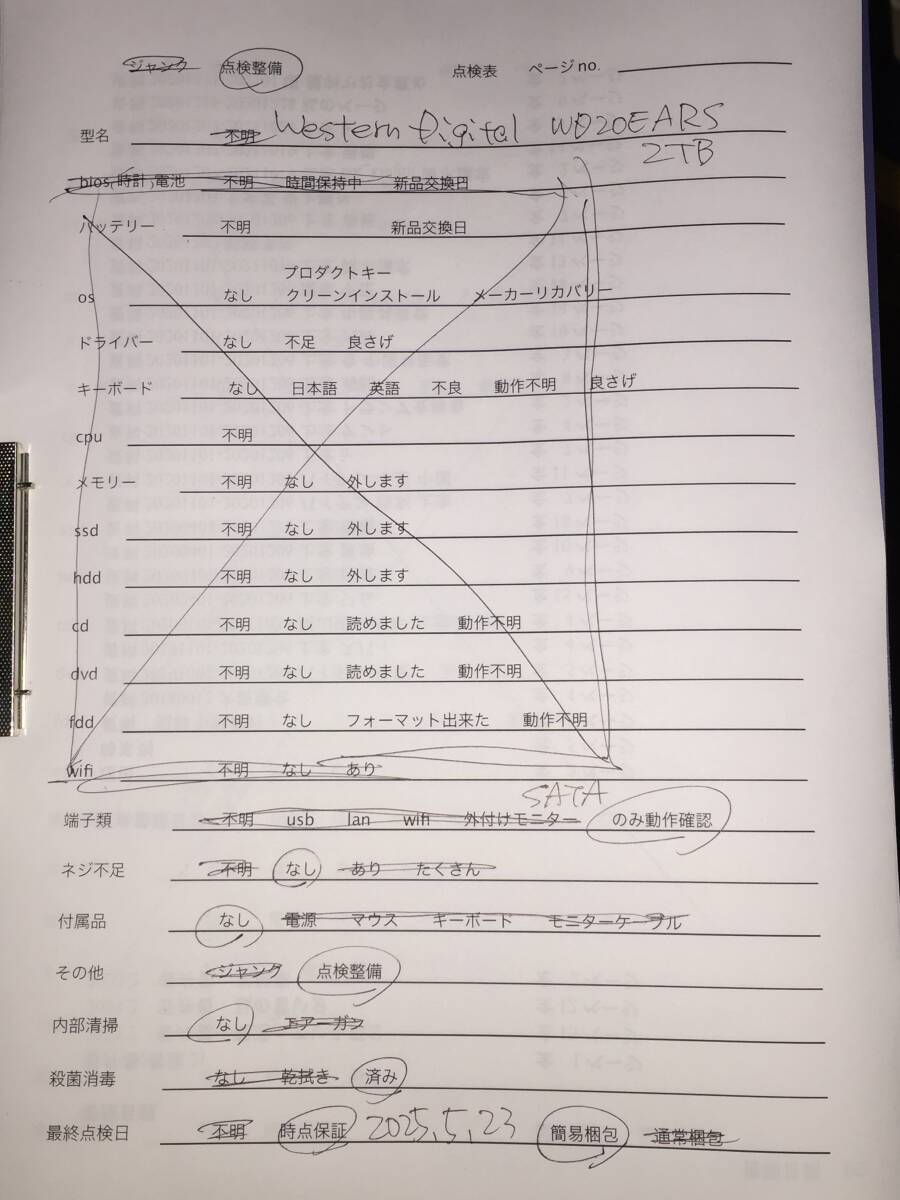 ジャンク 点検整備 点検表 ページno.
型名 不明 Western Digital WD20EARS
2TB
bios(時計)電池 不明 時間保持中 新品交換日
バッテリー 不明 新品交換日
プロダクトキー
os なし クリーンインストール メーカーリカバリー
ドライバー なし 不足 良さげ
キーボード なし 日本語 英語 不良 動作不明 良さげ
cpu 不明
メモリー 不明 なし 外します
ssd 不明 なし 外します
hdd 不明 なし 外します
cd 不明 なし 読めました 動作不明
dvd 不明 なし 読めました 動作不明
fdd 不明 なし フォーマット出来た 動作不明
wifi 不明 なし あり
SATA
端子類 不明 usb lan wifi 外付けモニター のみ動作確認
ネジ不足 不明 なし あり たくさん
付属品 なし 電源 マウス キーボード モニターケーブル
その他 ジャンク 点検整備
内部清掃 なし エアーガン
殺菌消毒 なし 乾拭き 済み
最終点検日 不明 時点保証 2025,5,23 簡易梱包 通常梱包